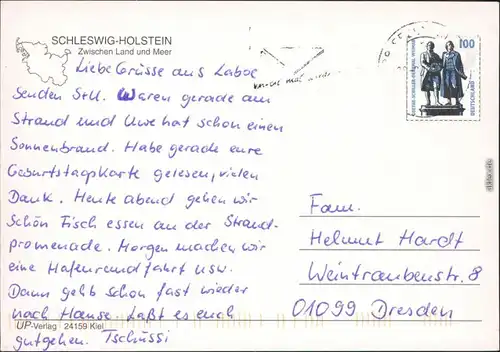 SCHLESWIG-HOLSTEIN
Zwischen Land und Meer
Liebe Grüsse aus Laboe
Senden S+U. Waren gerade am
Strand und Uwe hat schon einen
Sonnenbrand. Habe gerade eure
Geburtstagskarte gelesen, vielen
Dank. Heute abend gehen wir
schön Fisch essen an der Strand-
promenade. Morgen machen wir
eine Hafenrundfahrt usw.
Dann geht schon fast wieder
nach Hause. Laßt es euch
gutgehen. Tschüssi
UP-Verlag 24159 Kiel
100
DEUTSCHLAND
Fam.
Helmut Hardt
Weintraubenstr. 8
01099 Dresden